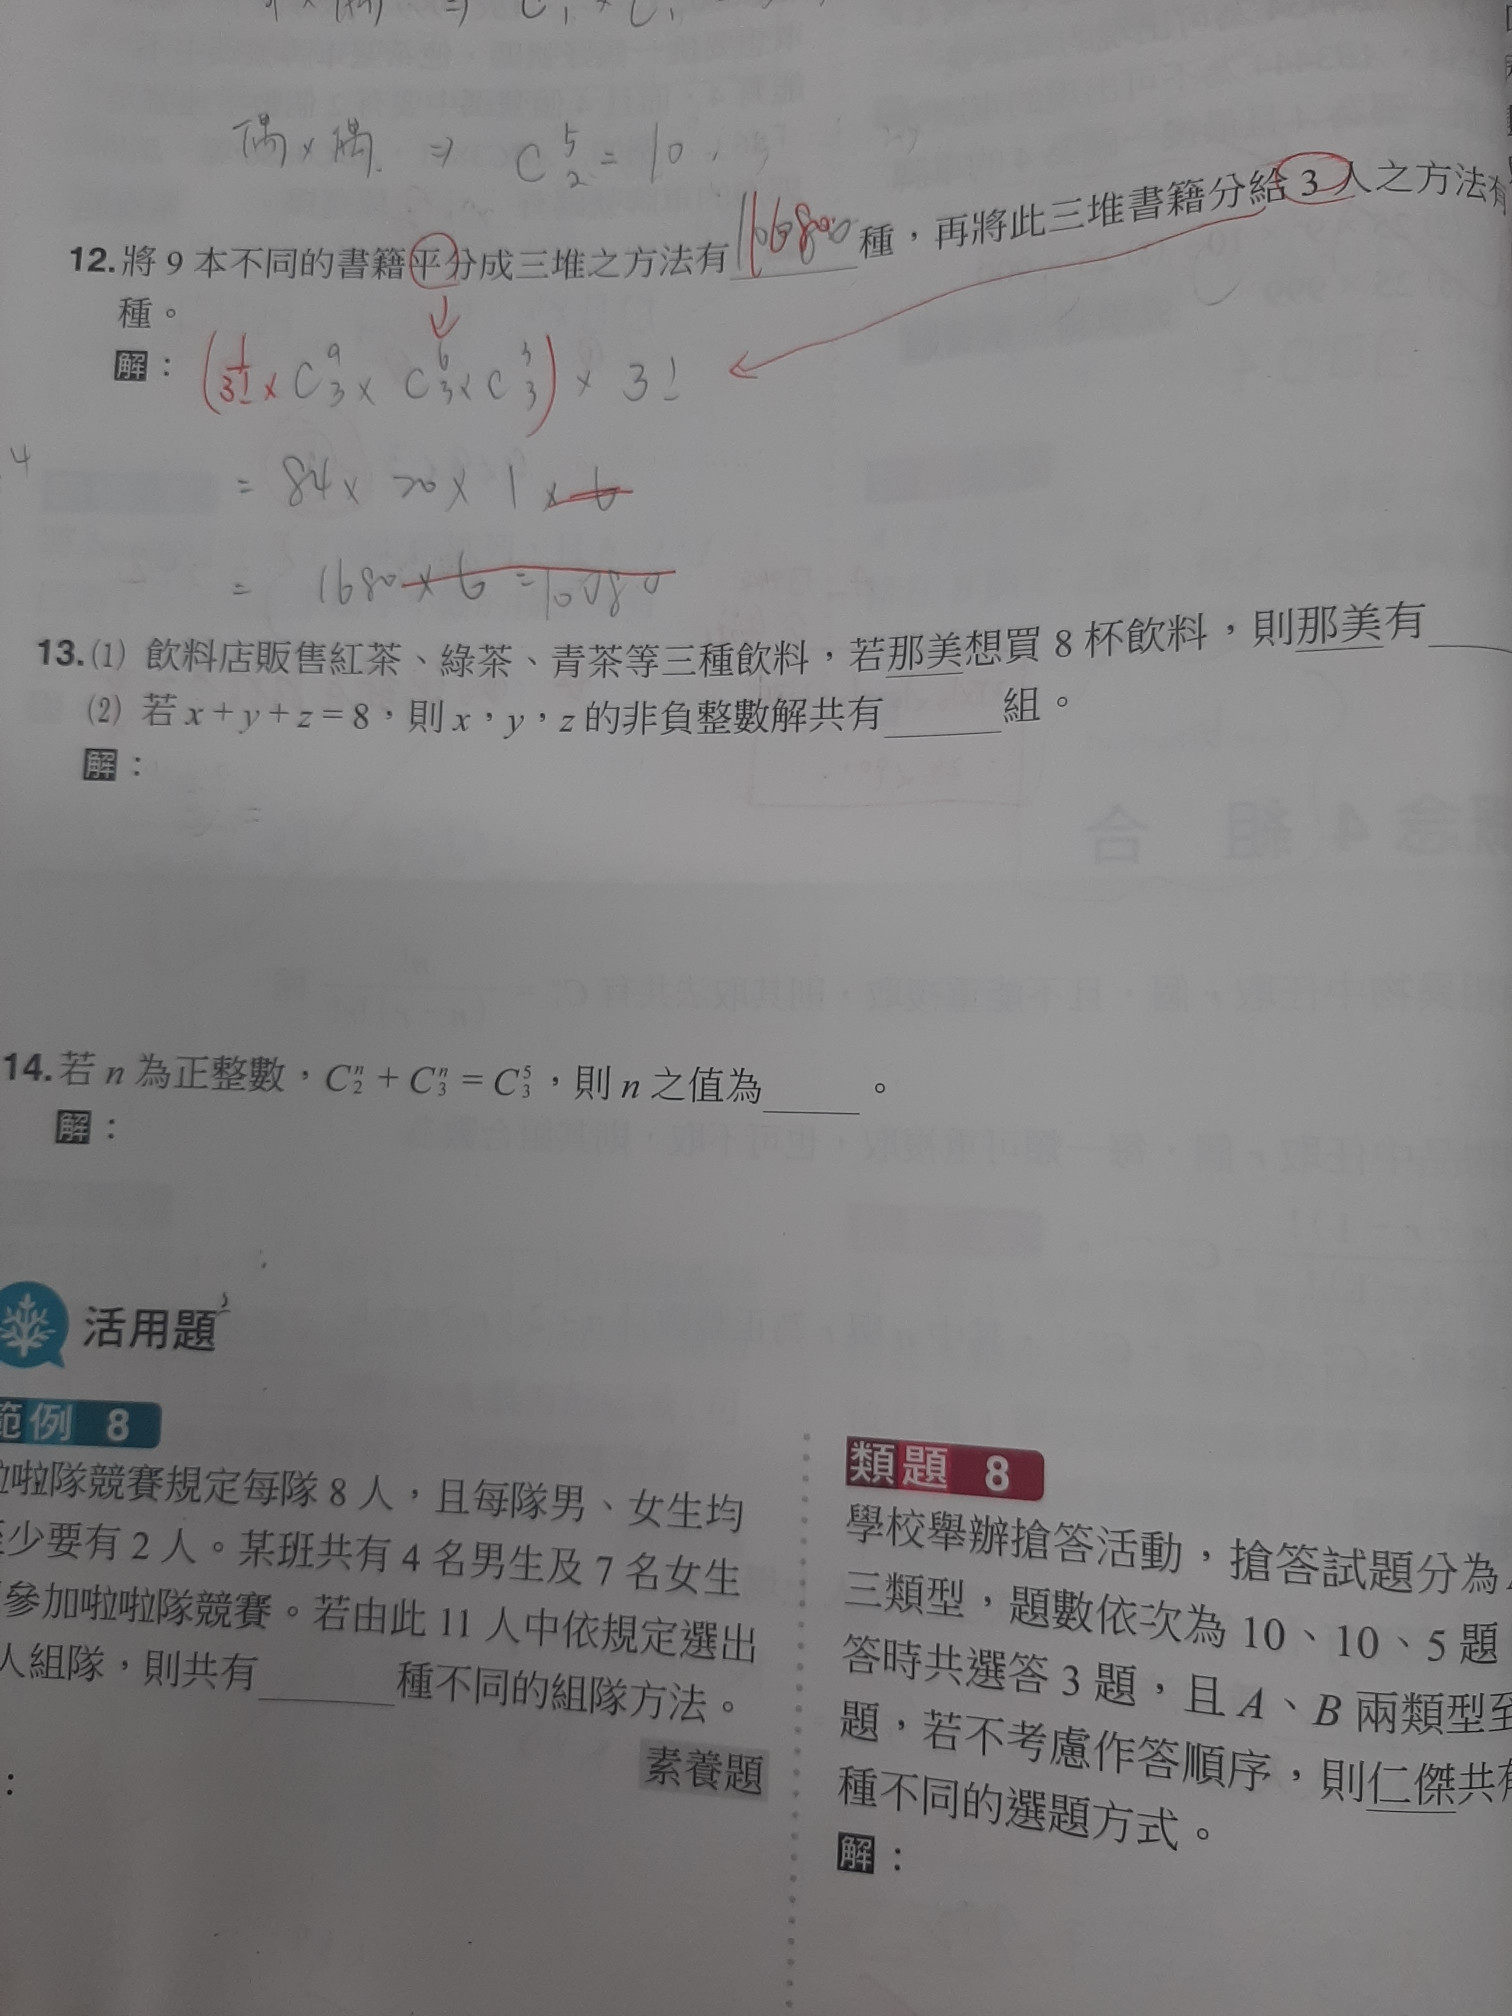 偶×偶 ⇒ C⁵₂ = 10
12. 將 9 本不同的書籍平分成三堆之方法有 種,再將此三堆書籍分給 3 人之方法有
種。
解: (1/3! × C⁹₃ × C⁶₃ × C³₃) × 3!
= 84 × 20 × 1 × 6
= 1680 × 6 = 10080
13. (1) 飲料店販售紅茶、綠茶、青茶等三種飲料,若那美想買 8 杯飲料,則那美有
(2) 若 x + y + z = 8,則 x,y,z 的非負整數解共有______組。
解:
14. 若 n 為正整數,Cⁿ₂ + Cⁿ₃ = C⁵₃,則 n 之值為_____。
解:
活用題
範例 8
啦隊競賽規定每隊 8 人,且每隊男、女生均
少要有 2 人。某班共有 4 名男生及 7 名女生
參加啦啦隊競賽。若由此 11 人中依規定選出
人組隊,則共有______種不同的組隊方法。
素養題
:
類題 8
學校舉辦搶答活動,搶答試題分為
三類型,題數依次為 10、10、5 題
答時共選答 3 題,且 A、B 兩類型至
題,若不考慮作答順序,則仁傑共有
種不同的選題方式。
解: